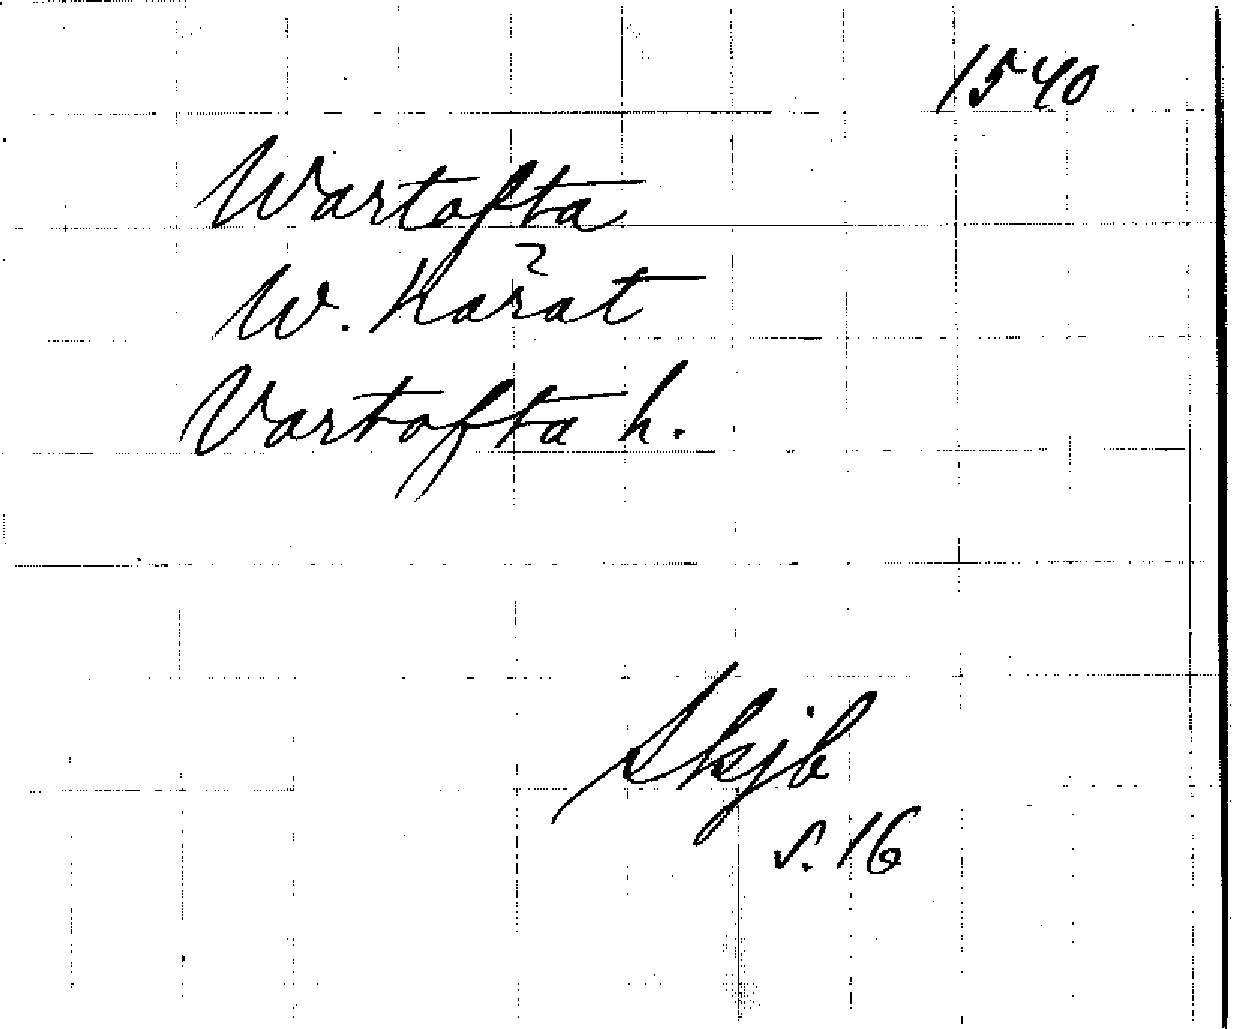 1540
Wartofta
W. harat
Vartofta h.
Skjb
s. 16